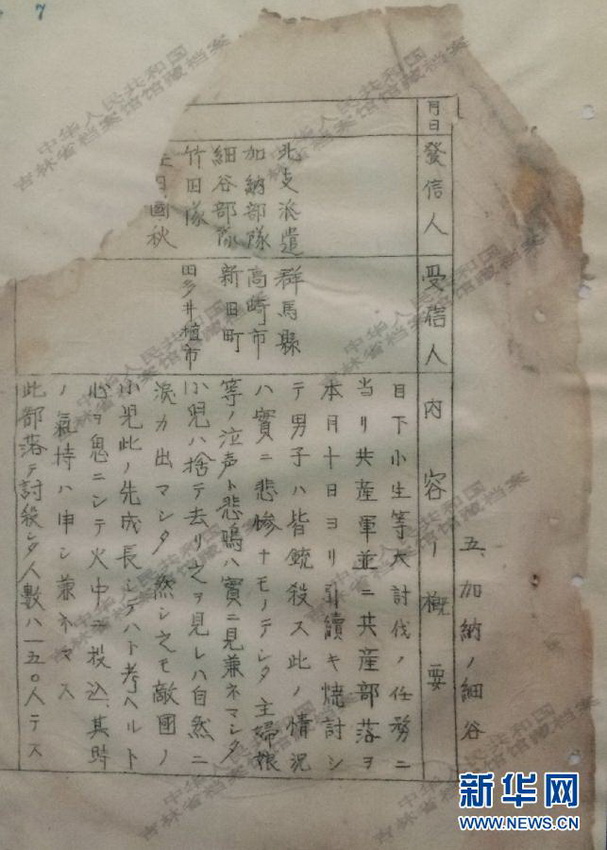 7
五、加納ノ細谷
月日
發信人
受信人
内容ノ概要
北支派遣
加納部隊
細谷部隊
竹田隊
國秋
群馬縣
高崎市
新田町
田多井植市
目下小生等大討伐ノ任務ニ
当リ共産軍並ニ共産部落ヲ
本月十日ヨリ引続キ焼討シ
テ男子ハ皆銃殺ス此ノ情況
ハ實ニ悲惨ナモノデシタ主婦娘
等ノ泣声ト悲鳴ハ實ニ見兼ネマシタ
小児ハ捨テ去リ之ヲ見レハ自然ニ
涙カ出マシタ然シ之モ敵国ノ
小児此ノ先成長シテハト考ヘルト
心ヲ鬼ニシテ火中ニ投込、其時
ノ氣持ハ申シ兼ネマス
此部落デ討殺シタ人數ハ一五〇人テス
中华人民共和国
吉林省档案馆馆藏档案
新华网
WWW.NEWS.CN